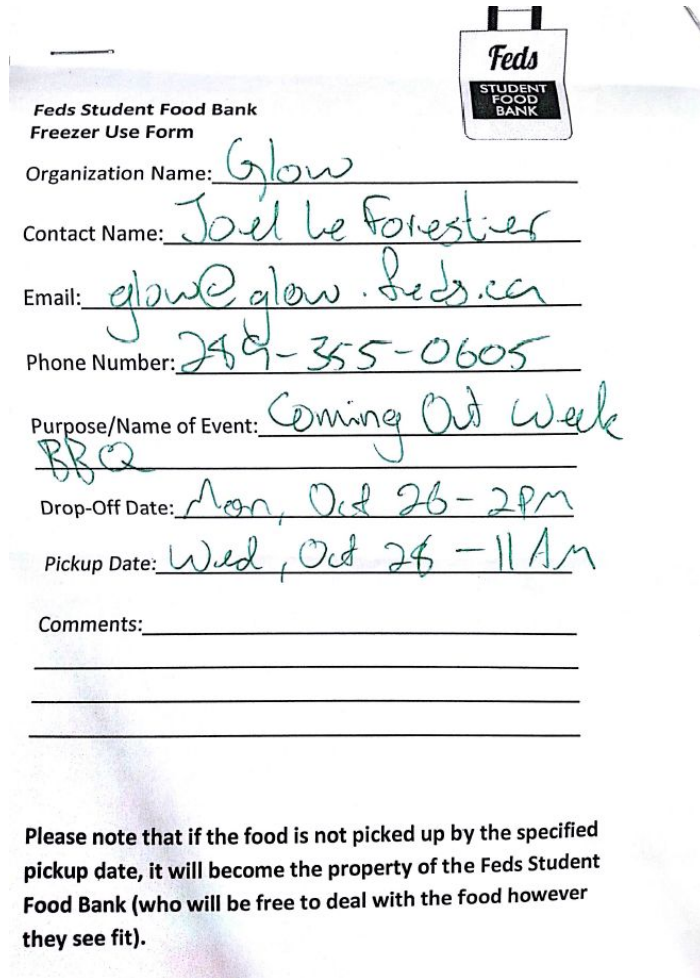 Feds
STUDENT
FOOD
BANK
Feds Student Food Bank
Freezer Use Form
Organization Name: Glow
Contact Name: Joel Le Forestier
Email: glow@glow.feds.ca
Phone Number: 289-355-0605
Purpose/Name of Event: Coming Out Week
BBQ
Drop-Off Date: Mon, Oct 26 - 2PM
Pickup Date: Wed, Oct 28 - 11 AM
Comments:
Please note that if the food is not picked up by the specified
pickup date, it will become the property of the Feds Student
Food Bank (who will be free to deal with the food however
they see fit).